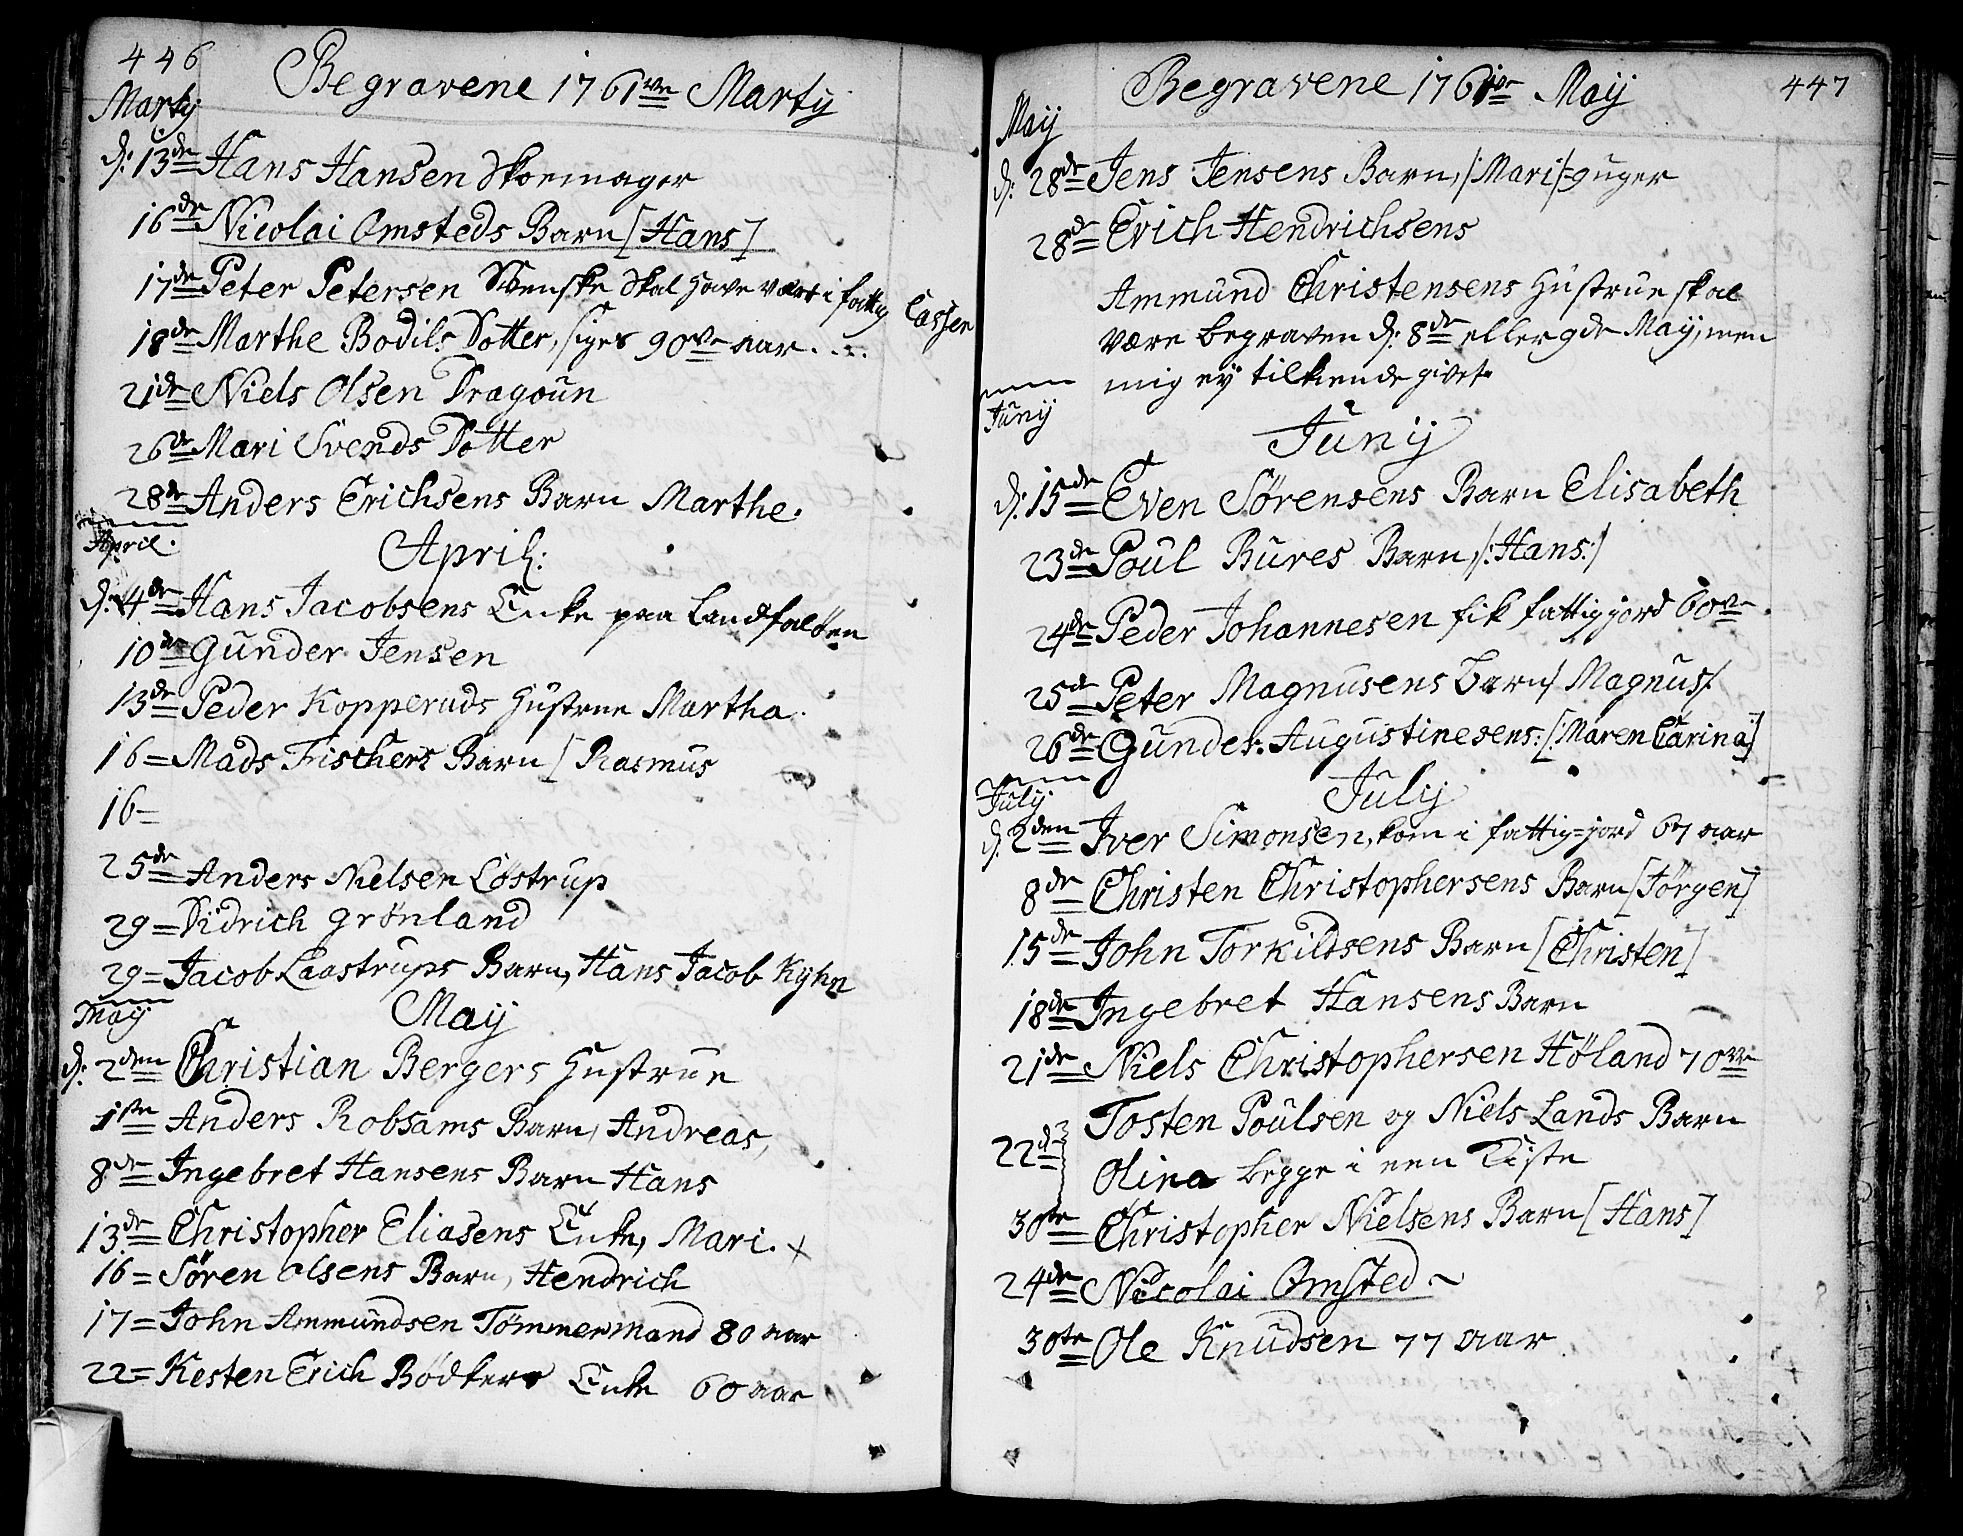 446
Begravene 1761ve Martij
Martij
d: 13de Hans Hansen Skoemager
16de Nicolai Omsteds Barn [Hans]
17de Peter Petersen Svenske skal have vært i fattig Cassen
18de Marthe Bodils Dotter, siges 90ve aar....
21de Niels Olsen Dragoun
26de Mari Svends Dotter
28de Anders Erichsens Barn Marthe.
April.
April:
d: 4de Hans Jacobsens Enke paa Landfaløen
10de Gunder Jensen
13de Peder Kopperuds Hustrue Martha.
16= Mads Fischers Barn [Rasmus
16=
25de Anders Nielsen Löstrup
29= Didrich Grönland
29= Jacob Laastrups Barn, Hans Jacob Kyhn
May
Maij
d: 2den Christian Bergers Hustrue
1ste Anders Robsams Barn, Andreas,
8de Ingebret Hansens Barn Hans
13de Christopher Eliasens Enke, Mari. x
16= Sören Olsens Barn, Hendrich
17= John Ammundsen Tömmermand 80 aar
22= Kesten Erich Bödkers Enke 60 aar
Begravene 1761ve Maij
447
Maij
d: 28de Jens Jensens Barn, /:Mari/= 9 uger
28de Erich Hendrichsens
Ammund Christensens Hustrue skal
være begraven d: 8de eller 9de Maij, men
mig ey tilkiende givet.
Junij
Junij
d: 15de Even Sörensens Barn Elisabeth
23de Poul Bures Barn, /:Hans:/
24de Peder Johannesen fik fattig jord 60ve.
25de Peter Magnusens Barn/ Magnus/.
26de Gunder: Augustinesens: [:Maren Carina]
July
Julij
d. 2den Iver Simonsen, kom i fattig=jord 67 aar
8de Christen Christophersens Barn [Jörgen]
15de John Torkildsens Barn [Christen]
18de Ingebret Hansens Barn
21de Niels Christophersen Höland 70ve
22de Tosten Poulsen og Niels Lands Barn
Olina begge i een Kiste
30te Christopher Nielsens Barn [Hans]
24de Nicolai Omsted ~
30te Ole Knudsen 77 aar